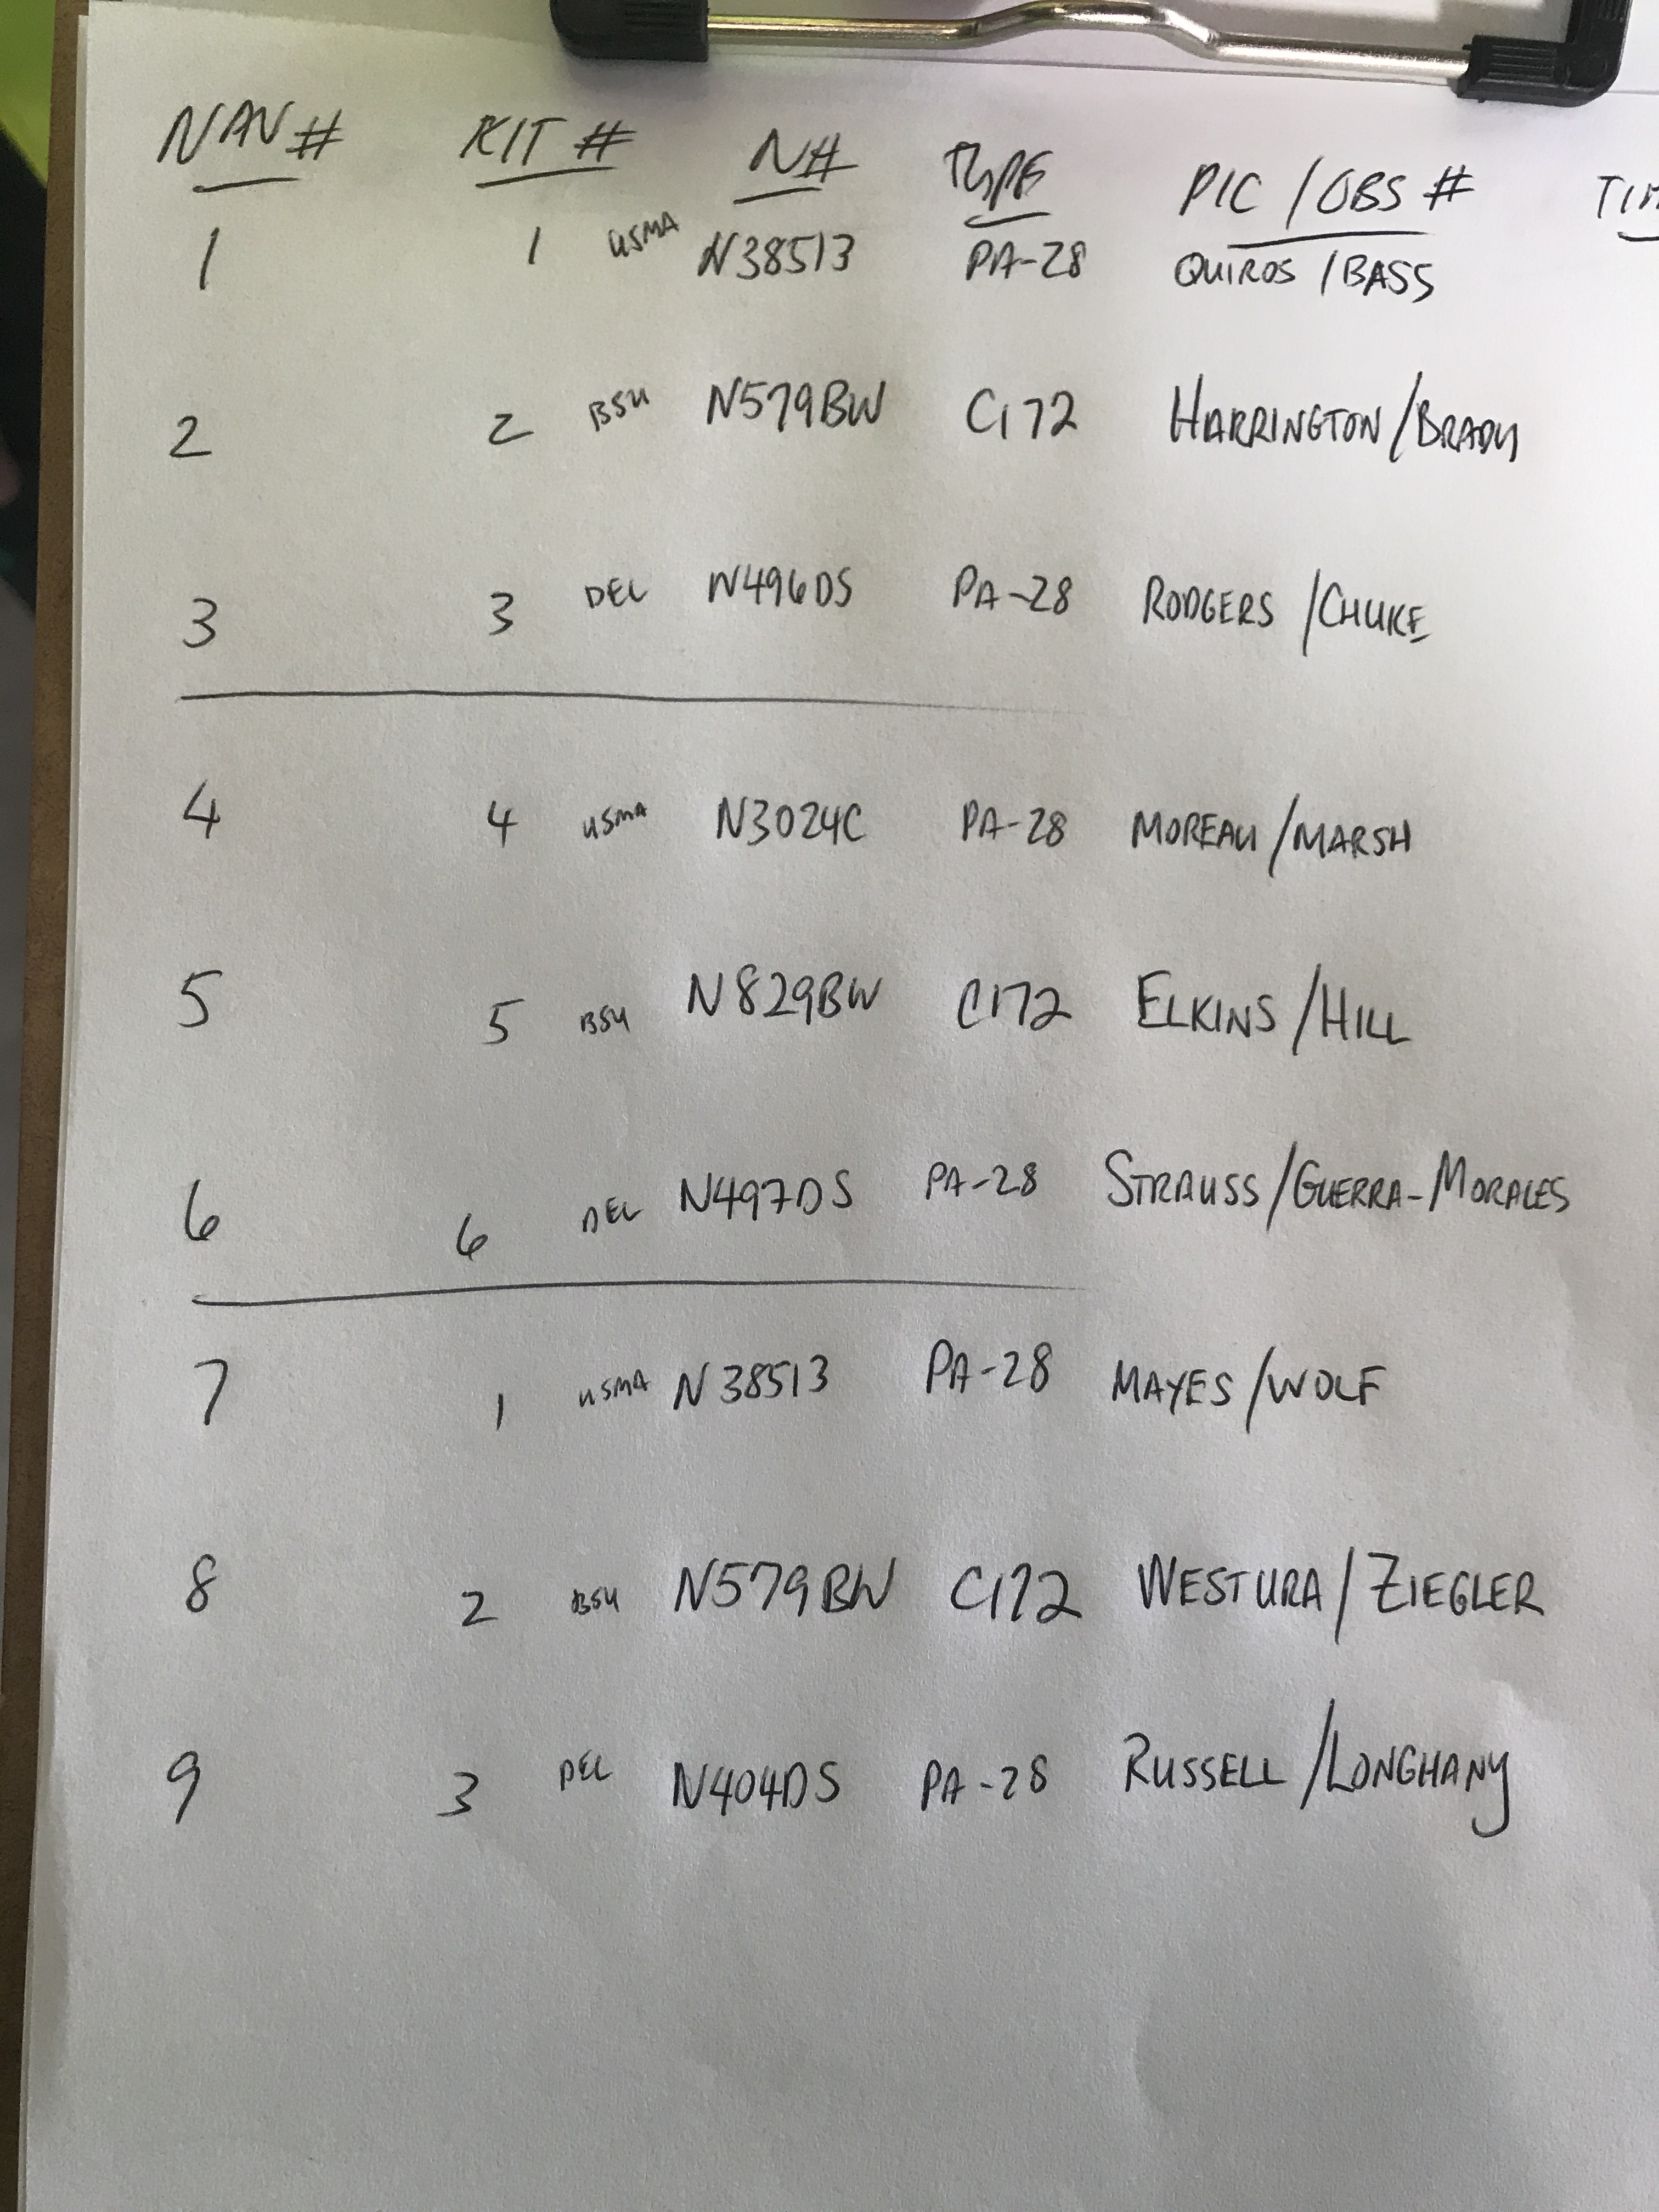 NAV # KIT # N# TYPE PIC / OBS #
1 1 USMA N38513 PA-28 QUIROS / BASS
2 2 BSU N579BW C172 HARRINGTON / BRADY
3 3 DEL N496DS PA-28 RODGERS / CHUKE
4 4 USMA N3024C PA-28 MOREAU / MARSH
5 5 BSU N829BW C172 ELKINS / HILL
6 6 DEL N497DS PA-28 STRAUSS / GUERRA-MORALES
7 1 USMA N38513 PA-28 MAYES / WOLF
8 2 BSU N579BW C172 WESTURA / ZIEGLER
9 3 DEL N404DS PA-28 RUSSELL / LONGHANY